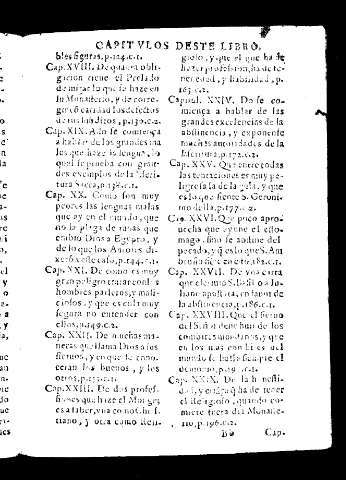 CAPITVLOS DESTE LIBRO.
bles figuras, p.124.c.1.
Cap. XVIII. De quanta obli-
gacion tiene el Perlado
de mirar lo que se haze en
su Monasterio, y de corre-
gir cõ caridad los defectos
de sus subditos, p.130.c.2.
Cap. XIX. Ado se comiença
a hablar de los grandes ma
les que haze la lengua, lo
qual se prueba con gran-
des exemplos de la Escri-
tura Sacra, p.138.c.1.
Cap. XX. Como son muy
peores las lenguas malas
que ay en el mundo, que
no la plaga de ranas que
embio Dios a Egypto, y
de lo que los Autores di-
xerõ este caso, p.144.c.1.
Cap. XXI. De como es muy
gran peligro tratar con los
hombres parleros, y mali-
ciosos, y que es cosa muy
segura no entender con
ellos, p.149.c.2.
Cap. XXII. De muchas ma-
neras que llama Dios a los
sieruos, y en que se cono-
ceran los buenos, y los
otros,
Cap. XXIII. De dos profes-
siones que haze el Monge,
es a saber, vna como Chris-
tiano, y otra como Reli-
gioso, y que el que ha de
hazer profession, ha de te-
ner edad, y habilidad, p.
163.c.2.
Capitul. XXIV. Do se co-
miença a hablar de las
grandes excelencias de la
abstinencia, y exponense
muchas autoridades de la
Escritura, p.172.c.2.
Cap. XXV. Que entre todas
las tentaciones es muy pe-
ligrosa la de la gula, y que
es lo que siente S. Geroni-
mo della, p.177.c.2.
Cap. XXVI. Que poco apro-
uecha que ayune el esto-
mago, sino se abstiene del
pecado, y q̃ es lo que S. Am
brosio siente desto, p.182.c.1.
Cap. XXVII. De vna carta
que escriuio S. Basilio a Ju-
liano apostata, en fauor de
la abstinencia, p.186.c.1.
Cap. XXVIII. Que el sieruo
del Señor deue huir de los
combites mundanos, y que
en los mas combites del
mundo se halla siempre el
demonio,
Cap. XXIX. De la honesti-
dad, y criança q̃ ha de tener
el Religioso, quando co-
miere fuera del Monaste-
rio, p.196.c.2.
Cap.